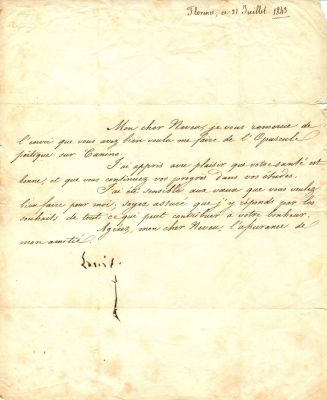 Florence, ce 21 Juillet 1843
Mon cher Neveu, je vous remercie de
l'envoi que vous avez bien voulu me faire de l'Opuscule
poëtique sur Canino.
J'ai appris avec plaisir que votre santé est
bonne, et que vous continuez vos progrès dans vos études.
J'ai été sensible aux vœux que vous voulez
bien faire pour moi, soyez assuré que j'y réponds par les
souhaits de tout ce que peut contribuer à votre bonheur.
Agréez, mon cher Neveu, l'assurance de
mon amitié.
Louis.